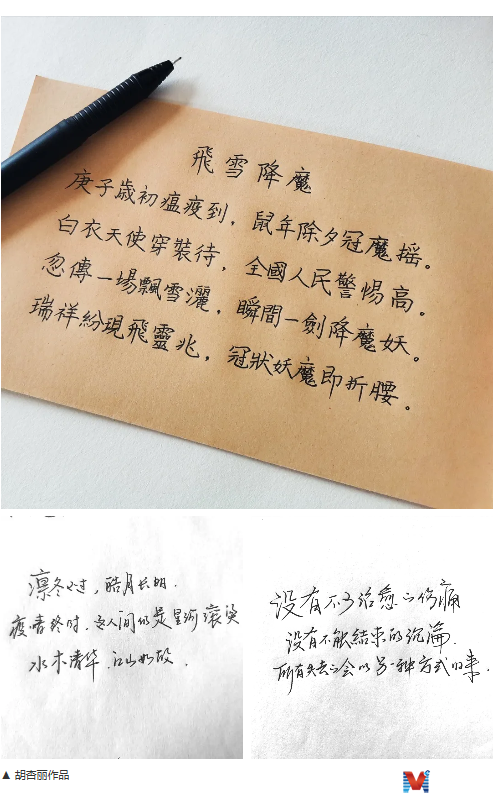 飛雪降魔
庚子歲初瘟疫到，鼠年除夕冠魔摇。
白衣天使穿裝待，全國人民警惕高。
忽傳一場飄雪灑，瞬間一劍降魔妖。
瑞祥紛現飛靈兆，冠狀妖魔即折腰。
凛冬以过，皓月长明.
疫清终时.吾人间仍是星河滚烫
水木清华.江山如故.
没有不了治愈的伤痛
没有不能结束的沉淪.
所有失去的会以另一种方式归来.
▲ 胡杏丽作品